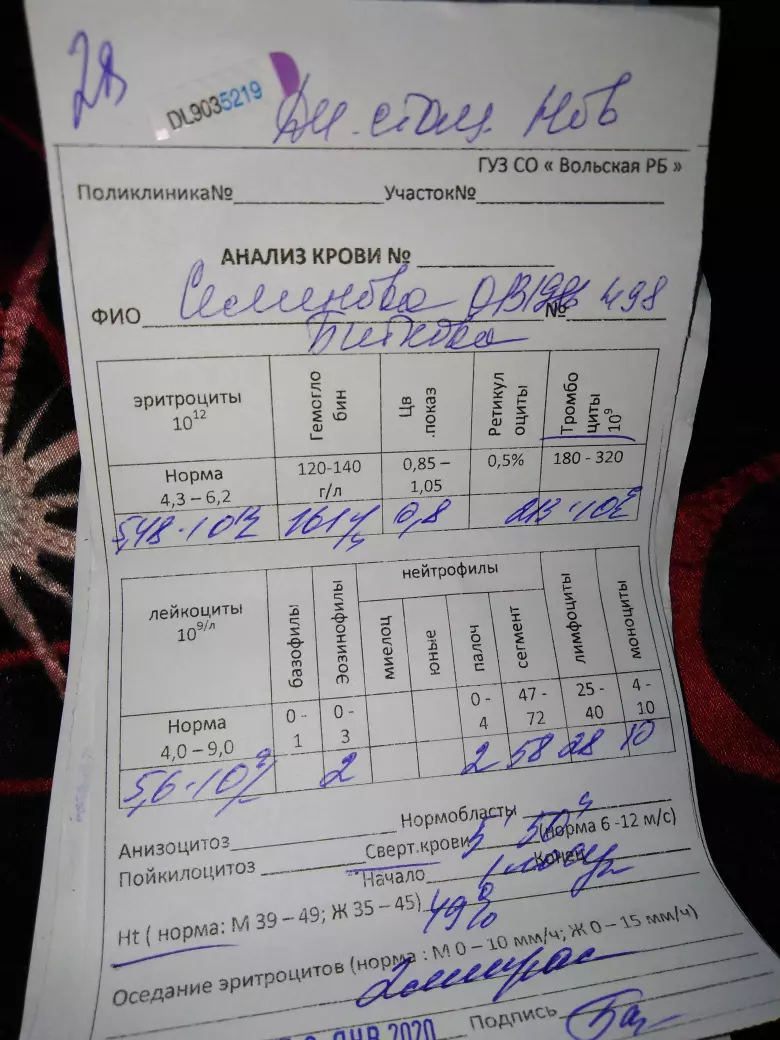 DL9035219
ГУЗ СО « Вольская РБ »
Поликлиника№ Участок№
АНАЛИЗ КРОВИ №
ФИО Семенова № 498
эритроциты 10¹² Гемоглобин Цв .показ Ретикулоциты Тромбоциты 10⁹
Норма 4,3 – 6,2 120-140 г/л 0,85 – 1,05 0,5% 180 - 320
5,48·10¹² 161 г/л 0,8 213·10⁹
нейтрофилы
лейкоциты 10⁹/л базофилы Эозинофилы миелоц юные палоч сегмент лимфоциты моноциты
Норма 4,0 – 9,0 0 - 1 0 - 3 0 - 4 47 - 72 25 - 40 4 - 10
5,6·10⁹/л 2 2 58 28 10
Анизоцитоз Нормобласты
Пойкилоцитоз Сверт.крови 5' 50" (норма 6 -12 м/с)
Начало Конец
Ht ( норма: М 39 – 49; Ж 35 – 45) 49%
Оседание эритроцитов (норма : М 0 – 10 мм/ч; Ж 0 – 15 мм/ч)
2 мм/час
ЯНВ 2020 Подпись